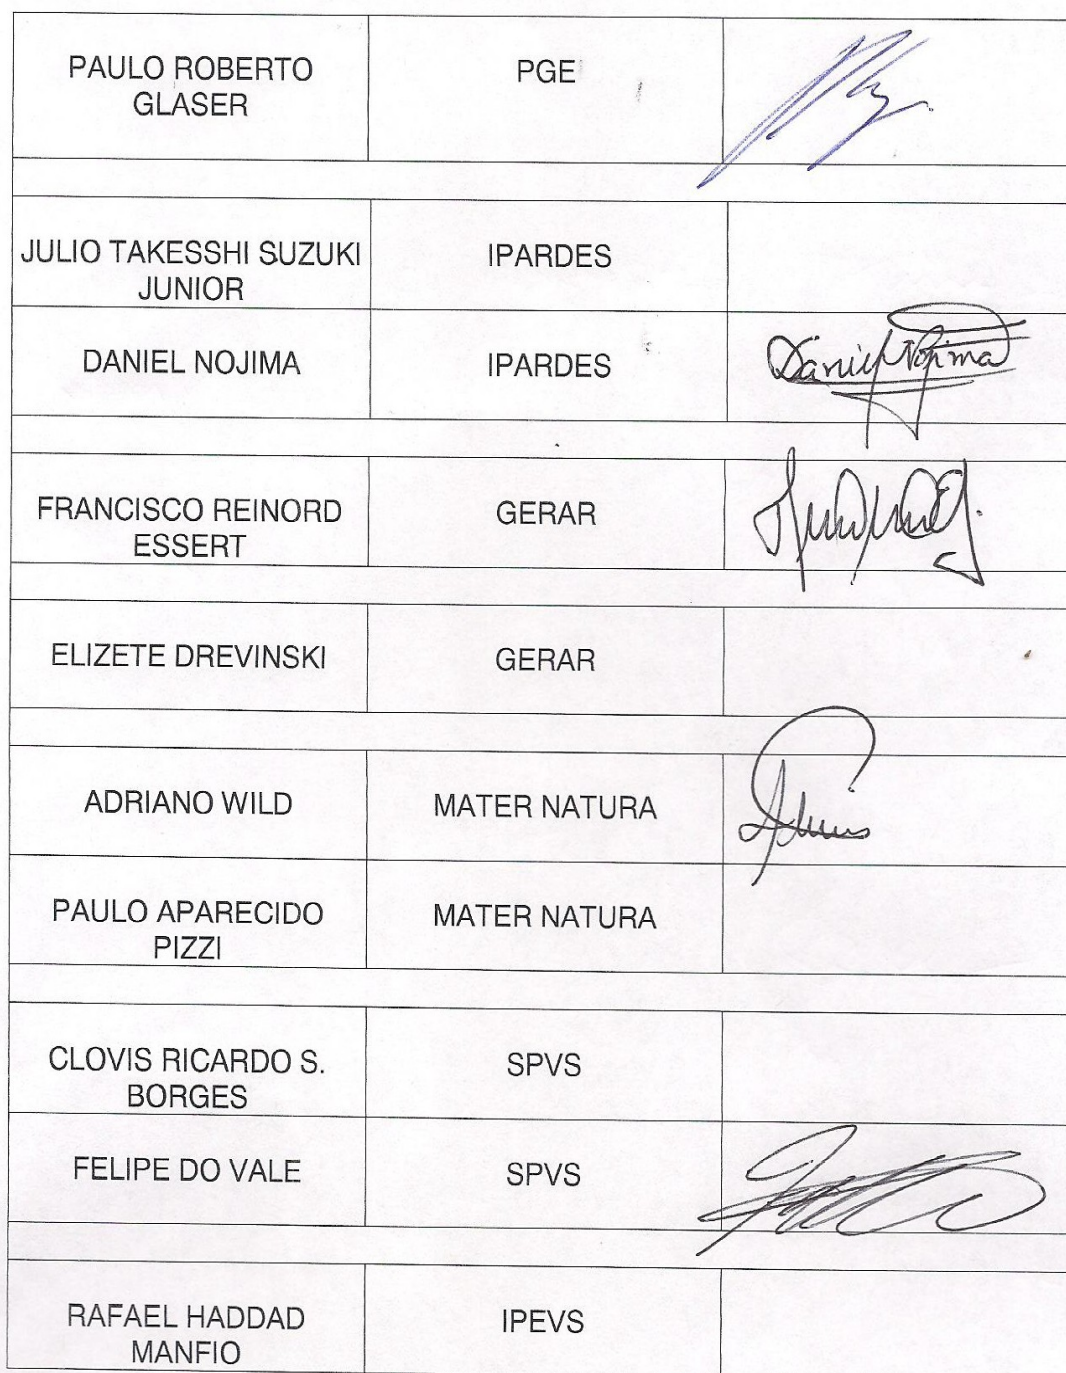 PAULO ROBERTO
GLASER
PGE
JULIO TAKESSHI SUZUKI
JUNIOR
IPARDES
DANIEL NOJIMA
IPARDES
Daniel Nojima
FRANCISCO REINORD
ESSERT
GERAR
ELIZETE DREVINSKI
GERAR
ADRIANO WILD
MATER NATURA
PAULO APARECIDO
PIZZI
MATER NATURA
CLOVIS RICARDO S.
BORGES
SPVS
FELIPE DO VALE
SPVS
RAFAEL HADDAD
MANFIO
IPEVS